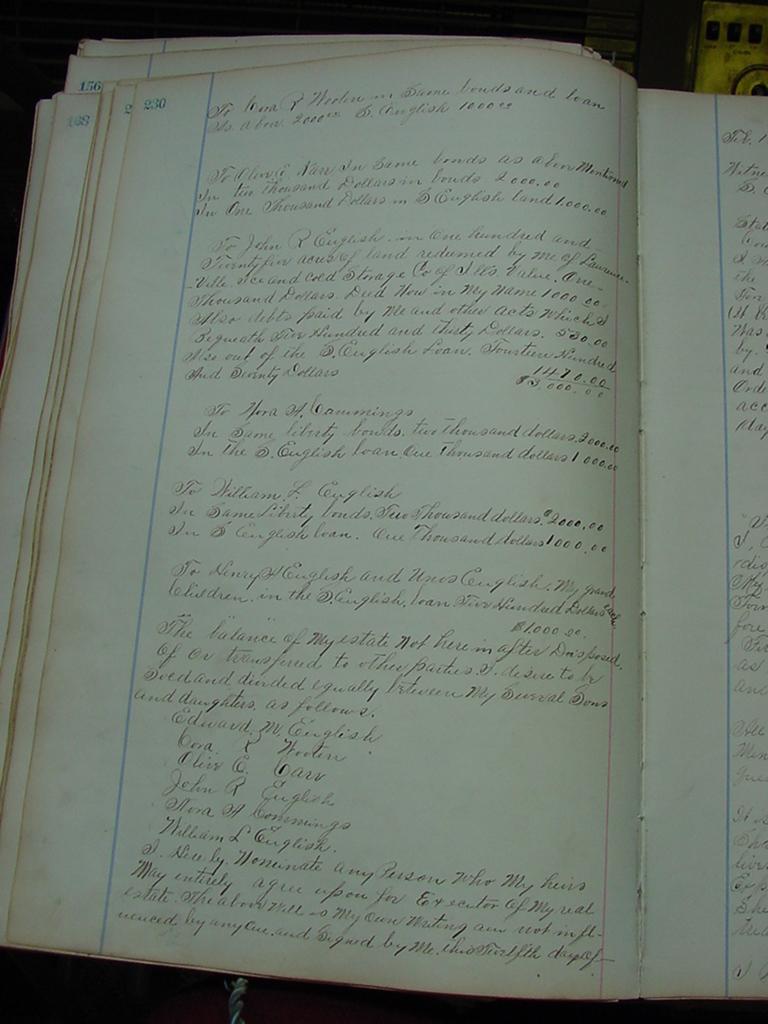 156
168
2
230
To Cora R Wooten in Same bonds and loan
As above 2000.00 S. English 1000.00
To Olive E Karr In Same bonds as above Mentioned
In two thousand Dollars in bonds 2000.00
In One Thousand Dollars in S English land 1.000.00
To John R English in One hundred and
Twenty five acres of land redeemed by me of Lawrence-
-Ville ice and cold Storage Co of Ills Value One
Thousand Dollars. Deed Now in My Name 1000.00
Also debts paid by Me and other acts Which I
Bequeath Five Hundred and thirty Dollars. 530.00
Also out of the S. English Loan. Fourteen Hundred
And Seventy Dollars 1470.00
$3,000.00
To Nora A. Cammings
In Same liberty bonds. two thousand dollars 2000.00
In the S. English loan One thousand dollars 1000.00
To William L English
In Same Liberty bonds. Two Thousand dollars $2000.00
In S English loan. One Thousand dollars 1000.00
To Henry H English and Unos English, My grand
Children. in the S. English, loan Five Hundred Dollars each
$1.000.00.
The balance of My estate Not here in after Disposed,
Of Or transferred to other parties I. desire to be
Soed and divided equally between My Several Sons
and daughters, as follows.
Edward M. English
Cora R Wooten
Olive E. Carr
John R English
Nora A Commings
William L English.
I. Here by. Nominate any Person Who My heirs
May entirely agree upon for Executor Of My real
estate. The above Will is My Own Writing am not infl-
uenced by any One. and Signed by Me. this Twelfth day of
Feb. 1
S.
the
was
by.
and
Orde
acc
May
I,
My
fore
as
and
It is